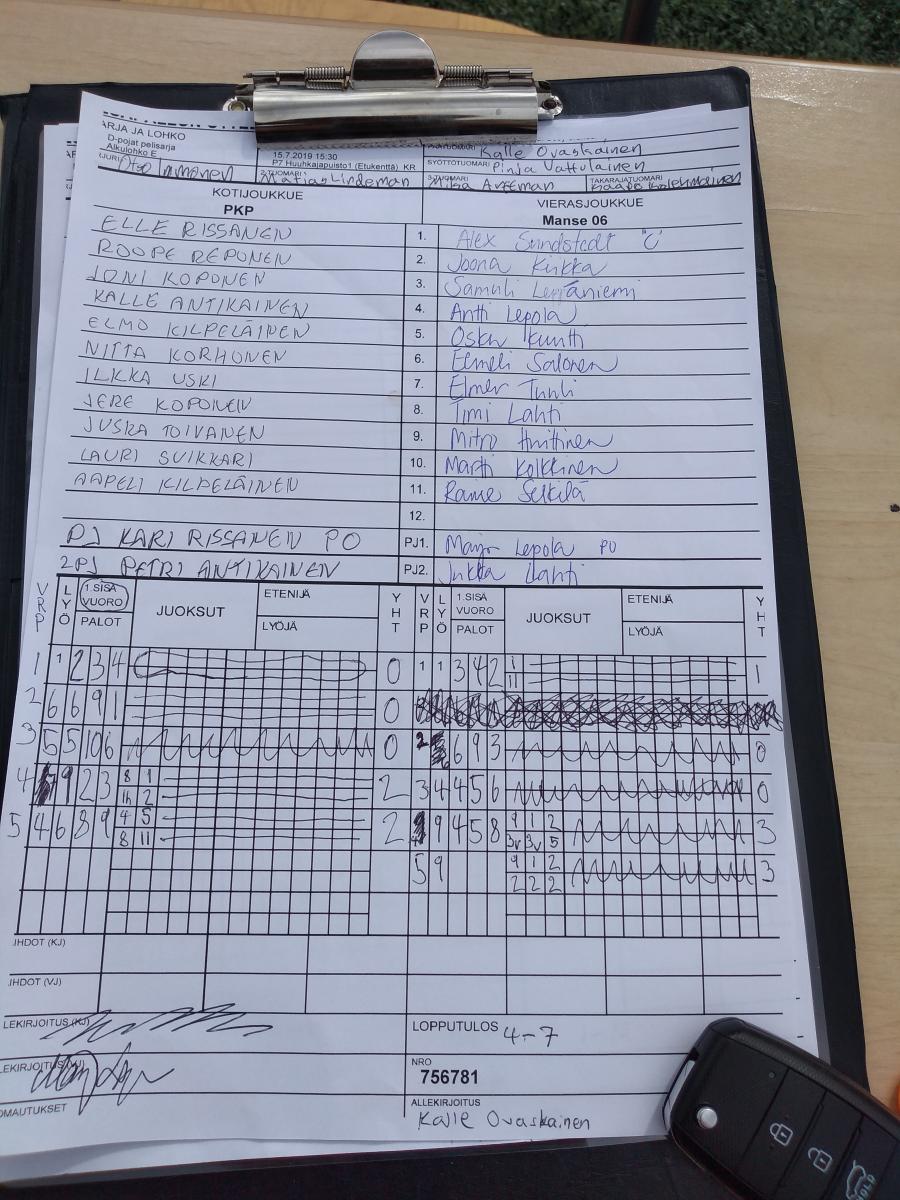 ARJA JA LOHKO
D-pojat pelisarja
Alkulohko E
15.7.2019 15:30
P7 Huuhkajapuisto1 (Etukenttä) KR
Kalle Ovaskainen
SYÖTTÖTUOMARI Pinja Vattulainen
Otso Immonen
Matias Lindeman
TAKARAJATUOMARI
KOTIJOUKKUE
PKP
VIERASJOUKKUE
Manse 06
ELLE RISSANEN 1. Alex Sundstedt "C"
ROOPE REPONEN 2. Joona Kirkka
JONI KOPONEN 3. Samuli Leppäniemi
KALLE ANTIKAINEN 4. Antti Lepola
ELMO KILPELÄINEN 5. Oskar Kuntti
NIITA KORHONEN 6. Eemeli Salonen
ILKKA USKI 7. Elmer Tuuli
JERE KOPONEN 8. Timi Lahti
JUSKA TOIVANEN 9. Mitro Huittinen
LAURI SUIKKARI 10. Martti Kolkkinen
AAPELI KILPELÄINEN 11. Rame Selkilä
12.
PJ KARI RISSANEN PO PJ1. Lepola PO
2PJ PETRI ANTIKAINEN PJ2. Jukka Lahti
VRP LYÖ 1.SISÄ VUORO PALOT JUOKSUT ETENIJÄ LYÖJÄ YHT VRP LYÖ 1.SISÄ VUORO PALOT JUOKSUT ETENIJÄ LYÖJÄ YHT
1 1 2 3 4 0 1 1 3 4 2 1 11 1
2 6 6 9 1 0
3 5 5 10 6 0 2 6 9 3 0
4 9 2 3 8 1 2 2 3 4 4 5 6 0
5 4 6 8 9 4 5 8 11 2 9 4 5 8 9 1 2 3v 3v 5 3
5 9 9 1 2 2 2 2 3
IHDOT (KJ)
IHDOT (VJ)
LEKIRJOITUS (KJ)
LOPPUTULOS 4-7
LEKIRJOITUS (VJ)
NRO
756781
OMAUTUKSET
ALLEKIRJOITUS
Kalle Ovaskainen